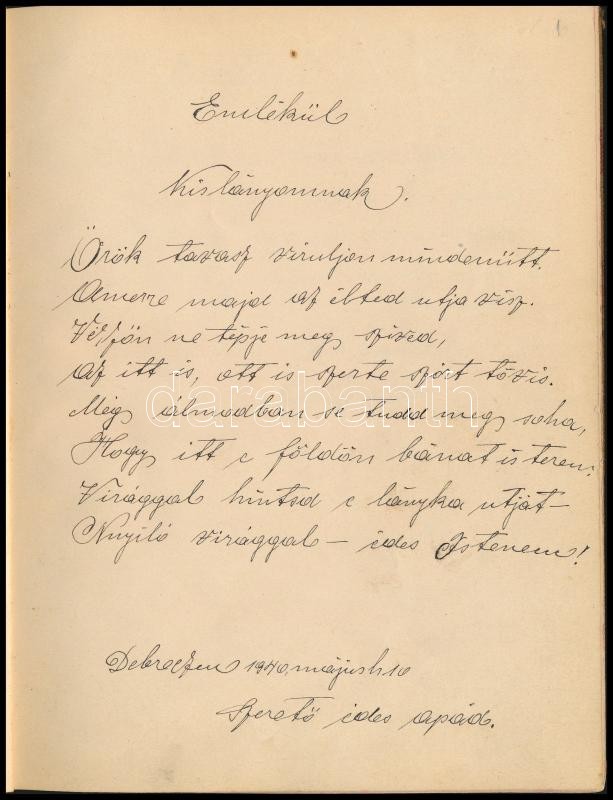 1
Emlékül
Kislányomnak.
Örök tavasz viruljon mindenütt.
Amerre majd az élted utja visz.
Vérzőn ne tépje meg szived,
az itt is, ott is szerte szórt tövis.
Még álmodban se tudd meg soha,
Hogy itt e földön bánat is terem.
Virággal hintsd e lányka utját -
Nnyiló virággal - édes Istenem!
Debreczen 1940, május h. 10
Szerető édes apád.
darabanth